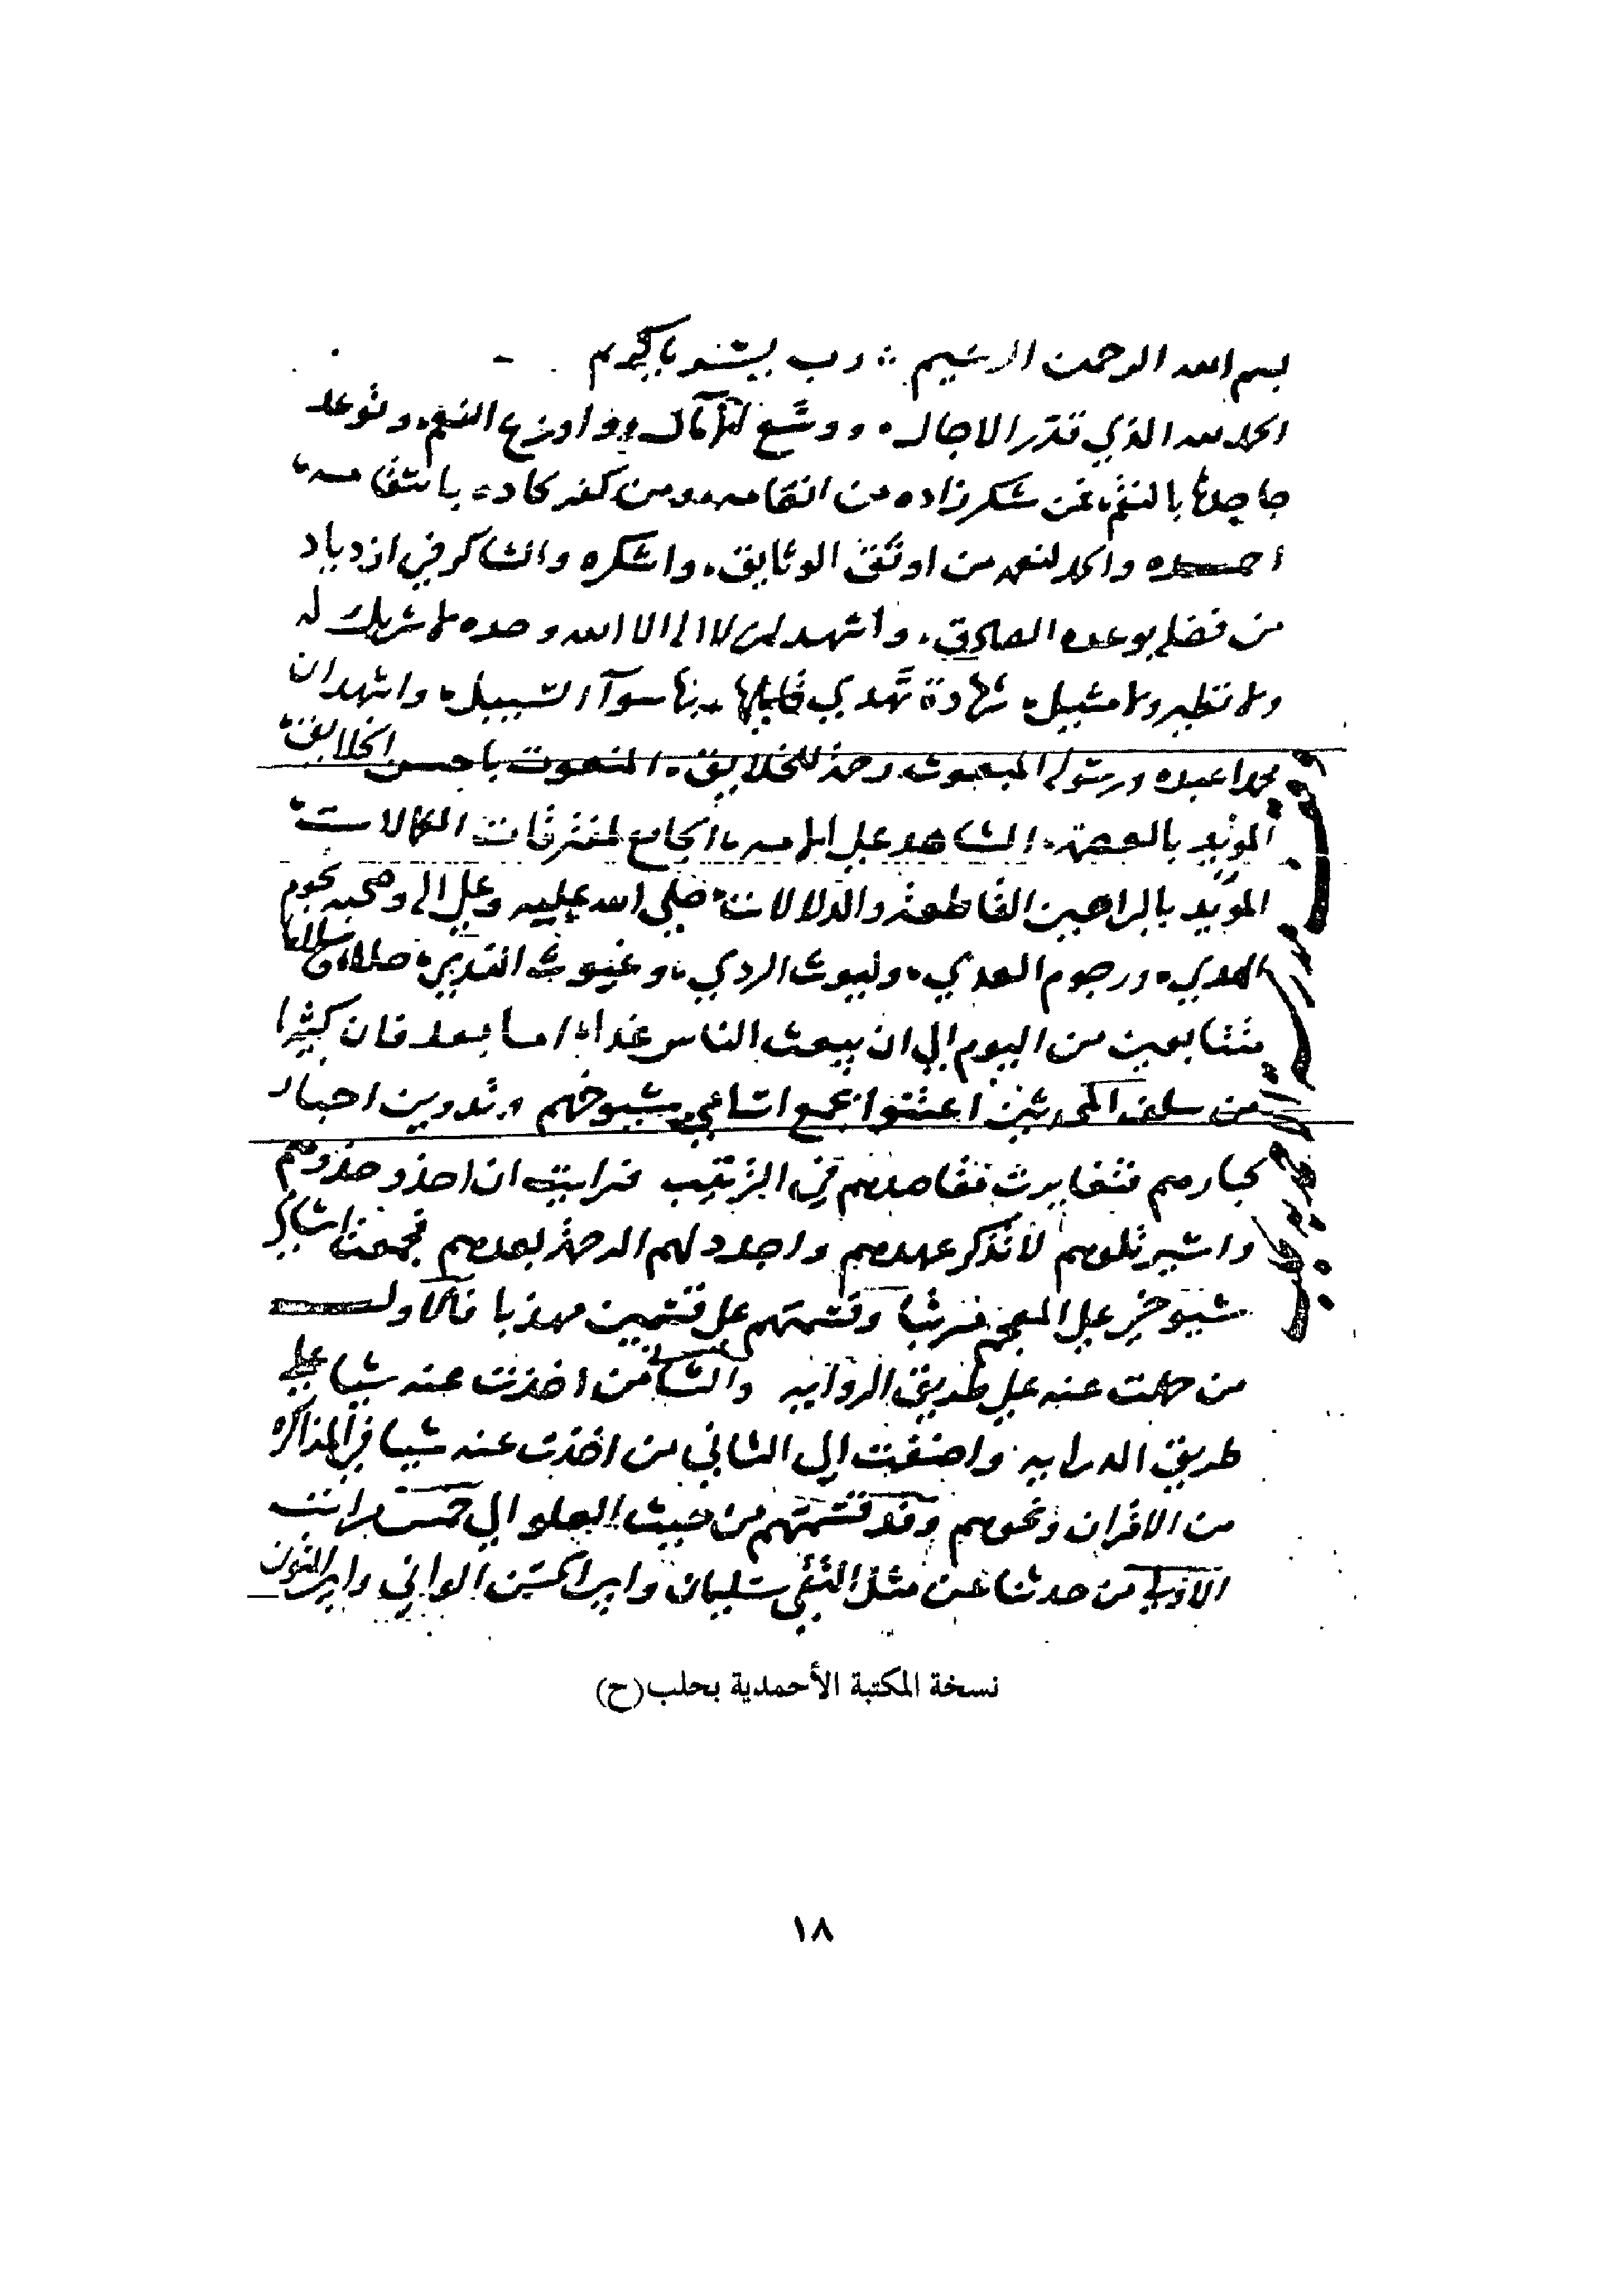 بسم الله الرحمن الرحيم رب يسر يا كريم
الحمد لله الذي قدر الاجال ووسع الآمال واوزع النعم وتوعد
جاحدها بالنقم فمن شكر زاده من انعامه ومن كفر كاده بانتقامه
احمده والحمد لنعمه من اوثق الوثايق واشكره والشاكر في ازدياد
من فضله بوعده الصادق واشهد ان لا اله الا الله وحده لا شريك له
ولا نظير ولا مثيل شهادة تهدي قايلها بها سوآ السبيل واشهد ان
محمدا عبده ورسوله المبعوث رحمة للخلايق المنعوت باحسن الخلايق
المؤيد بالعصمة الشاهد على الجامع لمفترقات الكمالات
المؤيد بالبراهين القاطعة والدلالات صلى الله عليه وعلى اله وصحبه نجوم
الهدي ورجوم العدي وليوث الردي وغيوث الندي صلاة وسلاما
متتابعين من اليوم الى ان يبعث الناس غدا اما بعد فان كثيرا
من سلف المحدثين اعتنوا بجمع اسامي شيوخهم وتدوين اخبار
كبارهم فتغايرت مقاصدهم في الترتيب فرايت ان احذو حذوهم
واسير تلوهم لاتذكر عهدهم واجدد لهم الرحمة بعدهم فجمعت اسامي
شيوخي على المعجم مرتبا وقسمتهم على قسمين مهذبا فالاول
من حملت عنه على طريق الرواية والثاني من اخذت عنه شيا على
طريق الدراية واضفت الى الثاني من اخذت عنه شيا في المذاكرة
من الاقران ونحوهم وقد قسمتهم من حيث العلو الى خمس مراتب
الاولى من حدثنا عن مثل التقي سليمان وابي الحسن الواني وابي النون
نسخة المكتبة الأحمدية بحلب (ح)
١٨